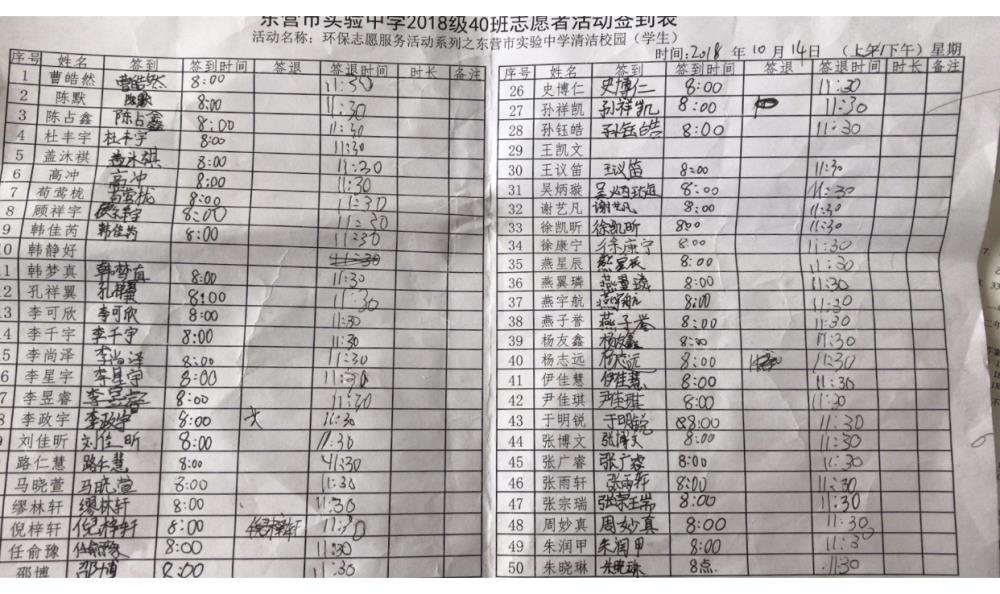 东营市实验中学2018级40班志愿者活动签到表
活动名称：环保志愿服务活动系列之东营市实验中学清洁校园（学生）
时间:2018 年 10 月 14日 （上午/下午）星期
序号 姓名 签到 签到时间 签退 签退时间 时长 备注
1 曹皓然 曹皓然 8:00 11:30
2 陈默 陈默 8:00 11:30
3 陈占鑫 陈占鑫 8:00 11:30
4 杜丰宇 杜丰宇 8:00 11:30
5 盖沐祺 盖沐祺 8:00 11:30
6 高冲 高冲 8:00 11:30
7 荀莺栊 8:00 11:30
8 顾祥宇 8:00 11:30
9 韩佳芮 韩佳芮 8:00 11:30
10 韩静好 11:30
11 韩梦真 韩梦真 8:00 11:30
12 孔祥翼 孔祥翼 8:00 11:30
13 李可欣 李可欣 8:00 11:30
4 李千宇 李千宇 8:00 11:30
5 李尚泽 李尚泽 8:00 11:30
6 李星宇 李星宇 8:00 11:30
7 李昱睿 李昱睿 8:00 11:30
8 李政宇 李政宇 8:00 11:30
刘佳昕 刘佳昕 8:00 11:30
路仁慧 路仁慧 8:00 11:30
马晓萱 马晓萱 8:00 11:30
缪林轩 缪林轩 8:00 11:30
倪梓轩 倪梓轩 8:00 倪梓轩 11:30
任俞豫 任俞豫 8:00 11:30
邵博 邵博 8:00 11:30
序号 姓名 签到 签到时间 签退 签退时间 时长 备注
26 史博仁 史博仁 8:00 11:30
27 孙祥凯 孙祥凯 8:00 11:30
28 孙钰皓 孙钰皓 8:00 11:30
29 王凯文
30 王议笛 王议笛 8:00 11:30
31 吴炳璇 吴炳璇 8:00 11:30
32 谢艺凡 谢艺凡 8:00 11:30
33 徐凯昕 徐凯昕 8:00 11:30
34 徐康宁 徐康宁 8:00 11:30
35 燕星辰 燕星辰 8:00 11:30
36 燕翼璘 燕翼璘 8:00 11:30
37 燕宇航 燕宇航 8:00 11:30
38 燕子誉 燕子誉 8:00 11:30
39 杨友鑫 杨友鑫 8:00 11:30
40 杨志远 杨志远 8:00 11:30
41 伊佳慧 伊佳慧 8:00 11:30
42 尹佳琪 尹佳琪 8:00 11:30
43 于明锐 于明锐 8:00 11:30
44 张博文 张博文 8:00 11:30
45 张广睿 张广睿 8:00 11:30
46 张雨轩 张雨轩 8:00 11:30
47 张宗瑞 张宗瑞 8:00 11:30
48 周妙真 周妙真 8:00 11:30
49 朱润甲 朱润甲 8:00 11:30
50 朱晓琳 朱晓琳 8点 11:30